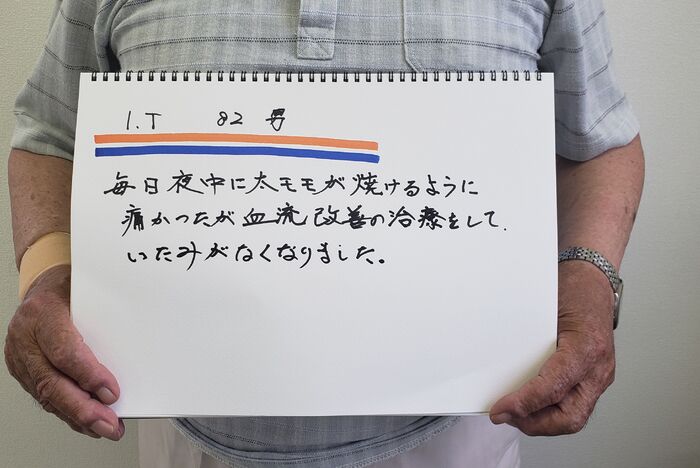 I.T 82 男
毎日夜中に太モモが焼けるように
痛かったが血流改善の治療をして、
いたみがなくなりました。